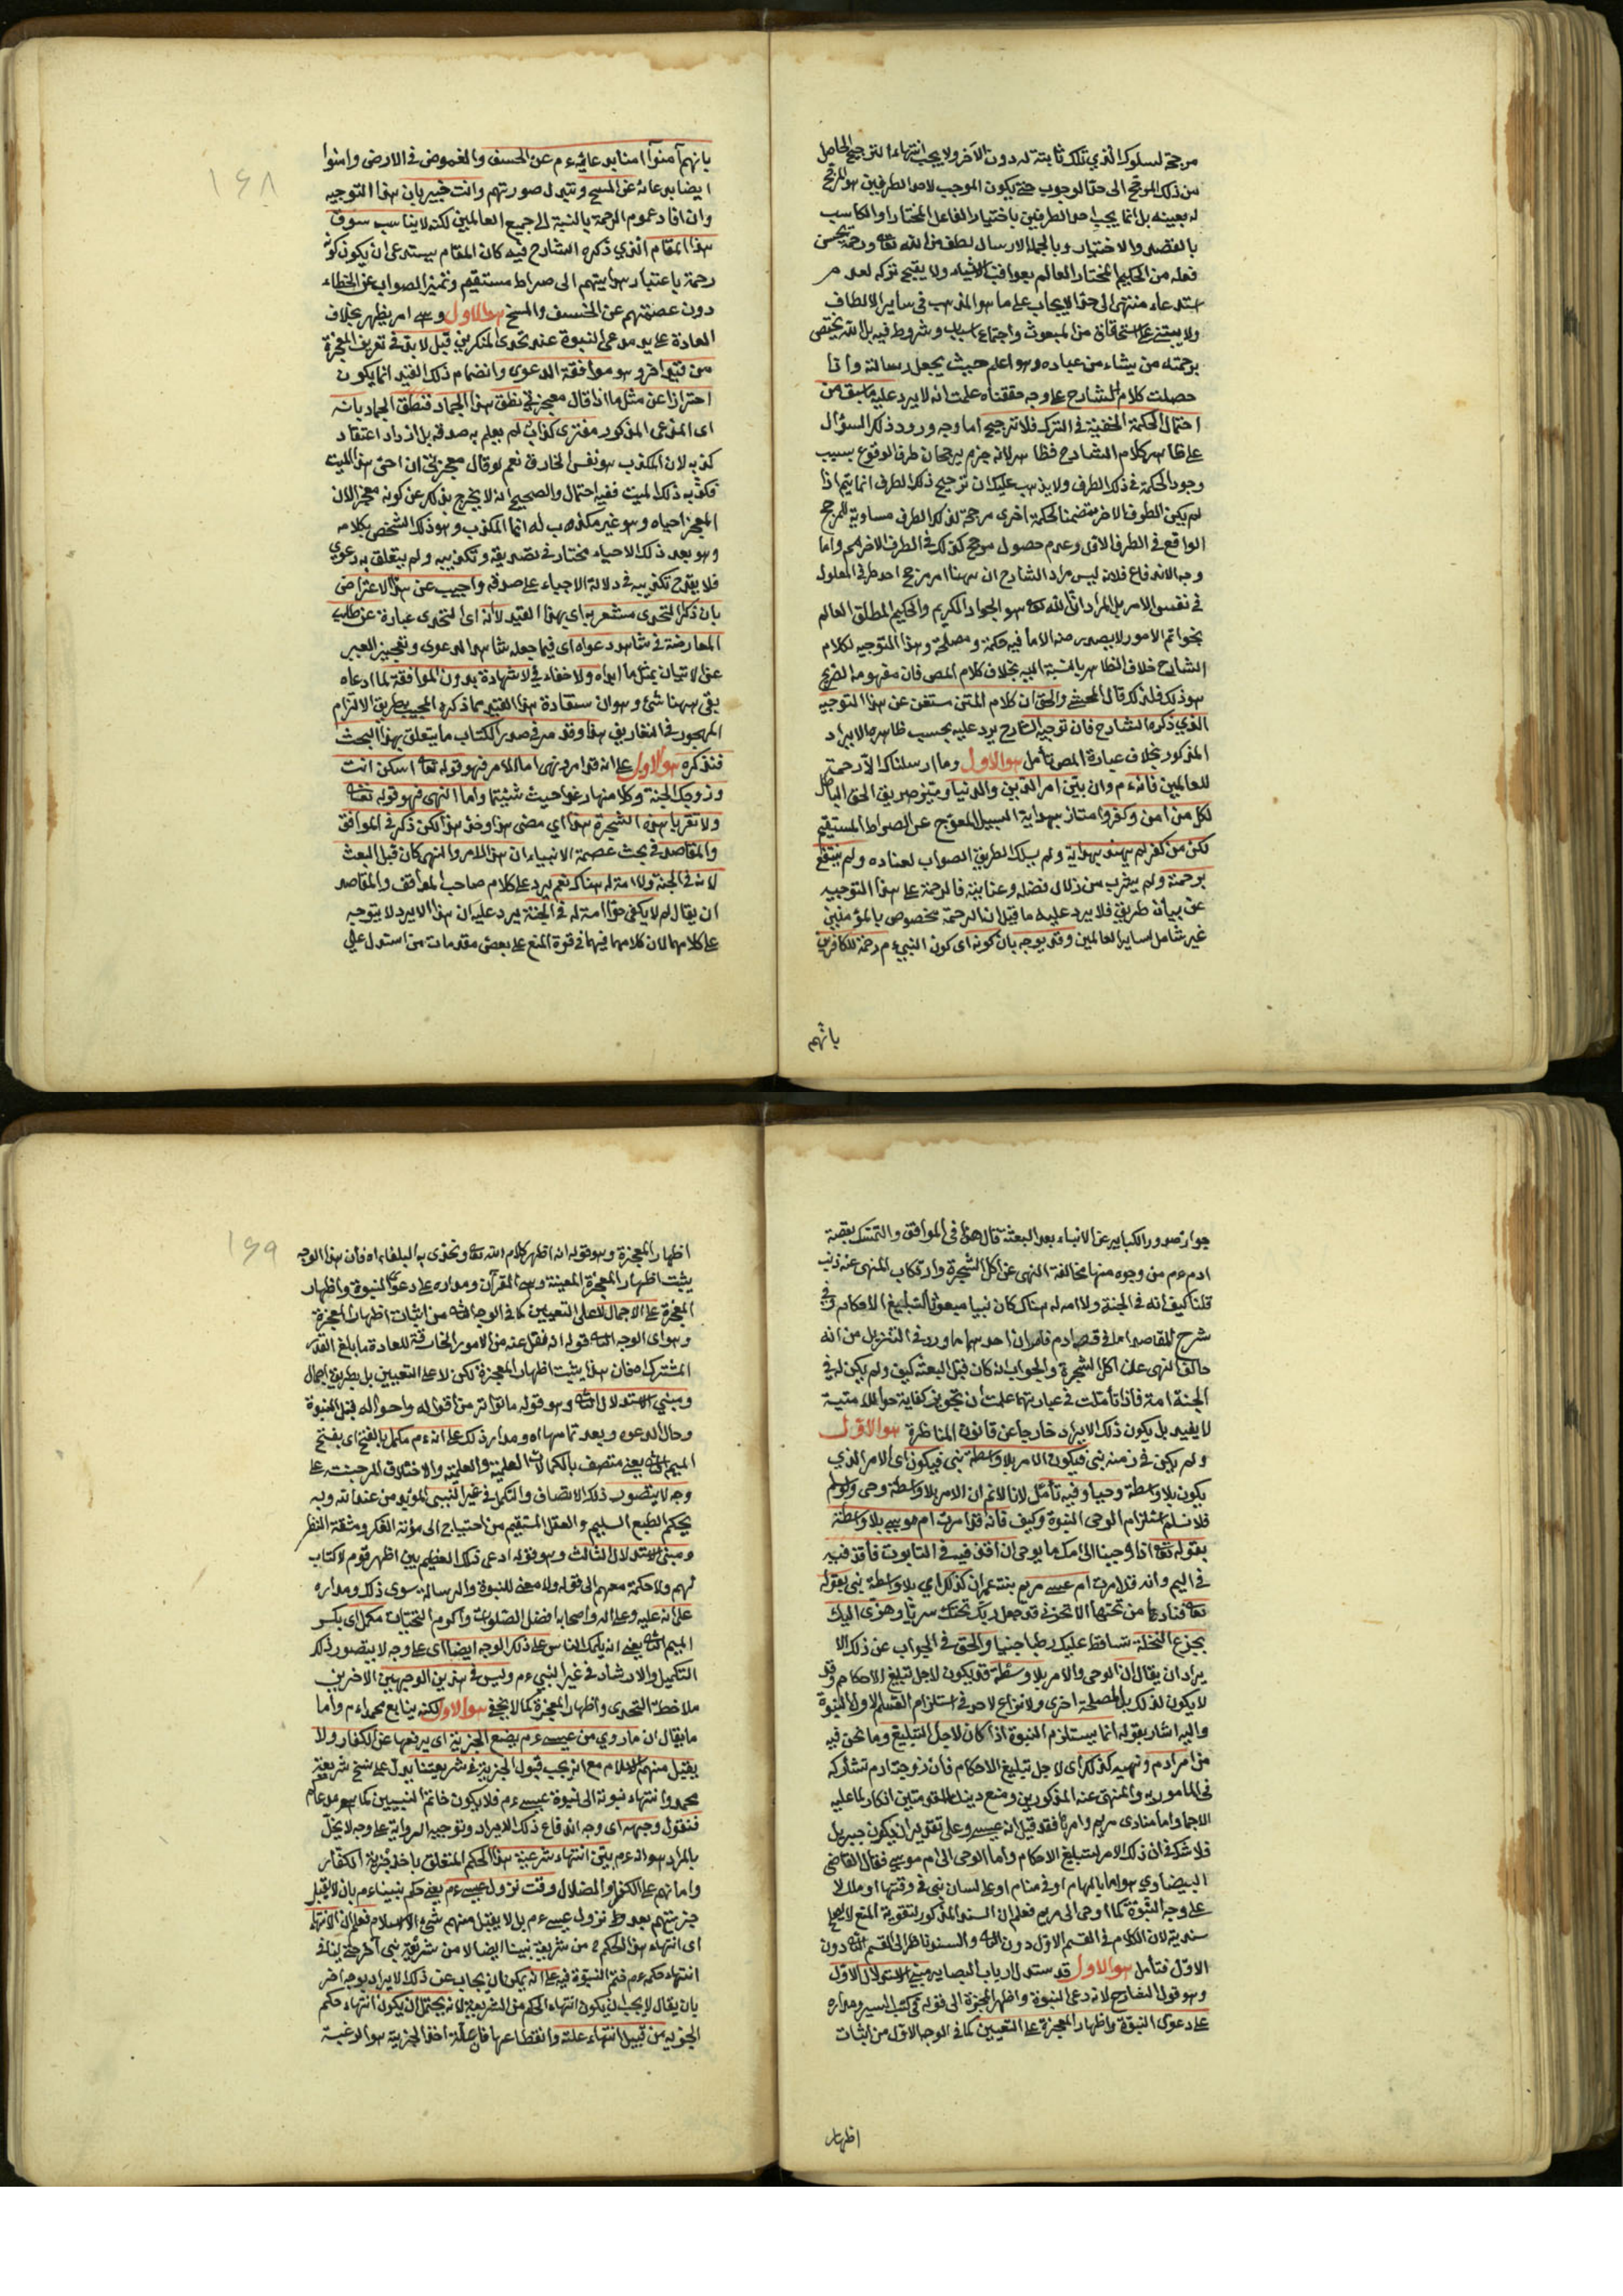 مرجحة لسلوك الذي تلك ثابتة له دون الآخر ولا يجب انتهاء الترجيح الحاصل
من ذلك المرجح الى حد الوجوب حتى يكون الموجب لاحد الطرفين هو المرجح
له بعينه بل انما يجب احد الطرفين باختيار الفاعل المختار او الكاسب
بالقصد والاختيار وبالجملة الارسال لطف من الله تعالى ورحمة يحسن
فعله من الحكيم المختار العالم بعواقب الاشياء ولا يقبح تركه لعدم
استدعاء منتهى الى حد الايجاب على ما هو المذهب في سائر الالطاف
ولا يبتنى على استحقاق من المبعوث واجتماع اسباب وشروط فيه بل الله يختص
برحمته من يشاء من عباده وهو اعلم حيث يجعل رسالته واذا
حصلت كلام الشارح على وجه حققناه علمت انه لا يرد عليه ما سبق من
احتمال الحكمة الخفية في الترك فلا ترجيح اما وجه ورود ذلك السؤال
على ظاهر كلام الشارح فظاهر لانه جزم برجحان طرف الوقوع بسبب
وجود الحكمة في ذلك الطرف ولا يذهب عليك ان ترجيح ذلك الطرف انما يتم اذا
لم يكن الطرف الآخر متضمنا لحكمة اخرى مرجحة لذلك الطرف مساوية للمرجح
الواقع في الطرف الاول وعدم حصول مرجح كذلك في الطرف الآخر واما
وجه الاندفاع فلانه ليس مراد الشارح ان ههنا امر مرجح احد طرفي المعلول
في نفس الامر بل المراد ان الله تعالى هو الجواد الكريم والحكيم المطلق العالم
بخواتم الامور لا يصدر منه الا ما فيه حكمة ومصلحة وهذا التوجيه لكلام
الشارح خلاف الظاهر بالنسبة اليه بخلاف كلام المص فان مفهومه الصريح
هو ذلك فلذلك قال المحشي والحق ان كلام المتن مستغن عن هذا التوجيه
الذي ذكره الشارح فان توجيه الشارح يرد عليه بحسب ظاهره الايراد
المذكور بخلاف عبارة المص تأمل هو الاول وما ارسلناك الا رحمة
للعالمين فانه م وان بين امر الدين والدنيا وميز طريق الحق الباطل
لكل من امن وكفر وامتاز بهداية السبيل المعوج عن الصراط المستقيم
لكن من كفر لم يهتد بهداية ولم يسلك الطريق الصواب لعناده ولم ينتفع
برحمته ولم يشرب من زلال فضله وعنايته فالرحمة على هذا التوجيه
عن بيان طريق فلا يرد عليه ما قيل ان الرحمة مخصوص بالمؤمنين
غير شامل لسائر العالمين وقد يوجه بان كونه اى كون النبي ءم رحمة للكافرين
بانهم
١٦٨
بانهم آمنوا امنا بدعائه ءم عن الخسف والغموض في الارض وامنوا
ايضا بدعائه عن المسخ وتبدل صورتهم وانت خبير بان هذا التوجيه
وان افاد عموم الرحمة بالنسبة الى جميع العالمين لكنه لا يناسب سوق
هذا المقام الذي ذكره الشارح فيه كان المقام يستدعى ان يكون كونه
رحمة باعتبار هدايتهم الى صراط مستقيم وتميز الصواب عن الخطاء
دون عصمتهم عن الخسف والمسخ هو الاول وهى امر يظهر بخلاف
العادة على يد مدعى النبوة عند تحدى المنكرين قيل لا بد في تعريف المعجزة
من قيد آخر وهو موافقة الدعوى وانضمام ذلك القيد انما يكون
احترازا عن مثل ما اذا قال معجزتي نطق هذا الجماد فنطق الجماد بانه
اى المدعى المذكور مفترى كذاب لم يعلم به صدقه بل ازداد اعتقاد
كذبه لان المكذب هو نفس الخارق نعم لو قال معجزتي ان احى هذا الميت
فكذبه ذلك الميت ففيه احتمال والصحيح انه لا يخرج بذلك عن كونه معجزا لان
المعجز احياه وهو غير مكذب له انما المكذب وهو ذلك الشخص بكلامه
وهو بعد ذلك الاحياء مختار في تصديقه وتكذيبه ولم يتعلق به دعوى
فلا يقدح تكذيبه في دلالة الاحياء على صدقه واجيب عن هذا الاعتراض
بان ذكر التحدى مشعر به اى بهذا القيد لانه اى التحدى عبارة عن طلب
المعارضة في شاهد دعواه اى فيما جعله شاهدا لدعوى وتعجيز الغير
عن الاتيان بمثل ما ابداه ولا خفاء في لا شهادة بدون الموافقة لما ادعاه
بقى ههنا شئ وهو ان ستفادة هذا القيد مما ذكره المجيب بطريق الالتزام
المهجور في التعاريف هذا وقد مر في صدر الكتاب ما يتعلق بهذا البحث
فتذكره هو الاول على انه قد امر ونهى اما الامر فهو قوله تعالى اسكن انت
وزوجك الجنة وكلا منها رغدا حيث شئتما واما النهى فهو قوله تعالى
ولا تقربا هذه الشجرة هذا اي مضى هذا وخذ هذا لكن ذكر في المواقف
والمقاصد في بحث عصمة الانبياء ان هذا الامر والنهى كان قبل البعث
لانه في الجنة ولا امة له هناك نعم يرد على كلام صاحب المواقف والمقاصد
ان يقال لم لا يكفى حوا امة له في الجنة يرد عليه ان هذا الايراد لا يتوجه
على كلامهما لان كلامهما فيهما في قوة المنع على بعض مقدمات من استدل على
جواز صدور الكبائر عن الانبياء بعد البعثة قال هذا في المواقف والتمسك بقصة
ادم ءم من وجوه منها مخالفة النهى عن اكل الشجرة وارتكاب المنهى عنه ذنب
قلنا كيف انه في الجنة ولا امه له هناك كان نبيا مبعوثا لتبليغ الاحكام وفي
شرح المقاصد اما في قصة ادم فامران احدهما ما ورد في التنزيل من انه
خالف النهى عن اكل الشجرة والجواب انه كان قبل البعثة كيف ولم يكن له في
الجنة امة فاذا تأملت في عبارتهما علمت ان تجويز كفاية حوا للامتية
لا يفيد بل يكون ذلك الايراد خارجا عن قانون المناظرة هو الاول
ولم يكن في زمنه نبى فيكون الامر بلا واسطة نبى فيكون اى الامر الذي
يكون بلا واسطة وحيا وفيه تأمل لانا لا نم ان الامر بلا واسطة وحى ولو سلم
فلا نسلم استلزام الوحى النبوة وكيف فانه قد امرت ام موسى بلا واسطة
بقوله تعالى اذ اوحينا الى امك ما يوحى ان اقذفيه في التابوت فاقذفيه
في اليم وانه قد امرت ام عيسى مريم بنت عمران كذلك اي بلا واسطة نبى بقوله
تعالى فنادىها من تحتها ألا تحزنى قد جعل ربك تحتك سريا وهزى اليك
بجزع النخلة تساقط عليك رطبا جنيا والحق في الجواب عن ذلك الا
يراد ان يقال ان الوحى والامر بلا واسطة قد يكون لاجل تبليغ الاحكام وقد
لا يكون لذلك بل لمصلحة اخرى ولا نزاع لاحد في استلزام القسم الاول النبوة
واليه اشار بقوله انما يستلزم النبوة اذا كان لاجل التبليغ وما نحن فيه
من امر ادم ونهيه كذلك اى لاجل تبليغ الاحكام فان زوجة ادم تشاركه
في المامور به والمنهى عنه المذكورين ومنع دينك المقدمتين انكار لما عليه
الاجماع واما منادى مريم وامرها فقد قيل انه عيسى وعلى تقدير ان يكون جبريل
فلا شك في ان ذلك الامر لتبليغ الاحكام واما الوحى الى ام موسى فقال القاضى
البيضاوي هو اما بالهام او في منام او على لسان نبى في وقتها او ملك لا
على وجه النبوة كما اوحى الى مريم فعلم ان السند المذكور لتقوية المنع لا يصلح
سندية لان الكلام في القسم الاول دون الثاني والسند ناظر الى القسم الثاني دون
الاول فتأمل هو الاول قد ستدل ارباب البصاير مبنى الاستدلال الاول
وهو قول الشارح لانه دعى النبوة واظهر المعجزة الى قوله في كتب السير ومداره
على دعوى النبوة واظهار المعجزة على التعيين كما في الوجه الاول من اثبات
اظهار
١٦٩
اظهار المعجزة وهو قوله انه اظهر كلام الله تعالى وتحدى به البلغاء اه فان هذا الوجه
يثبت اظهار المعجزة المعينة وهى القرآن ومداره على دعوى النبوة واظهار
المعجزة على الاجمال لا على التعيين كما في الوجه الثاني من اثبات اظهار المعجزة
وهو اى الوجه الثاني قوله انه نقل عنه من الامور الخارقة للعادة ما بلغ القدر
المشترك اه فان هذا يثبت اظهار المعجزة لكن لا على التعيين بل بطريق اجمال
ومبنى الاستدلال الثاني وهو قوله ما تواتر من اقواله واحواله قبل النبوة
وحال الدعوه وبعد تمامها اه ومدار ذلك على انه ءم مكمل بالفتح اى بفتح
الميم الثاني يعنى متصف بالكمالات العلمية والعملية والاختلاق المرجنت على
وجه لا يتصور ذلك الاتصاف والتكمل في غير النبى المؤيد من عند الله وبه
يحكم الطبع السليم والعقل المستقيم من احتياج الى مؤنة الفكر ومشقة النظر
ومبنى الاستدلال الثالث وهو قوله ادعى ذلك العظيم بين اظهر قوم لا كتاب
لهم ولا حكمة معهم الى قوله ولا معنى للنبوة والرسالة سوى ذلك ومداره
على انه عليه وعلى اله واصحابه افضل الصلوات واكرم التحيات مكمل اى بكسر
الميم الثاني يعنى انه يكمل الناس على ذلك الوجه ايضا اى على وجه لا يتصور ذلك
التكميل والارشاد في غير النبي ءم وليس في هذين الوجهين الاخرين
ملاحظة التحدى واظهار المعجزة كما لا يخفى هو الاول لكنه يتابع محمدا ءم واما
ما يقال ان ما روي من عيسى ءم يضع الجزية اى يرفعها عن الكفار ولا
يقبل منهم الا الاسلام مع انه يجب قبول الجزية في شريعتنا يدل على نسخ شريعة
محمد وانتهاء نبوته الى نبوة عيسى ءم فلا يكون خاتم النبيين كما هو مدعاكم
فنقول وجهه اى وجه اندفاع ذلك الايراد وتوجيه الرواية على وجه لا يخل
بالمراد هو انه ءم بين انتهاء شرعية هذا الحكم المتعلق باخذ جزية الكفار
وامانهم على الكفر والضلال وقت نزول عيسى ءم يعنى حكم نبينا ءم بان لا يقبل
جزيتهم بعد نزول عيسى ءم بل لا يقبل منهم شئ الا الاسلام فعلم ان الانتهاء
اى انتهاء هذا الحكم من شريعة نبينا ايضا لا من شريعة نبى آخر حتى ينافى
انتهاء حكمه ءم ختم النبوة فيه على انه يمكن ان يجاب عن ذلك الايراد بوجه آخر
بان يقال لا يجب ان يكون انتهاء الحكم من الشريعة لانه يحتمل ان يكون انتهاء حكم
الجزية من قبيل انتهاء علته وانقطاعها فان علة اخذ الجزية هو الرغبة